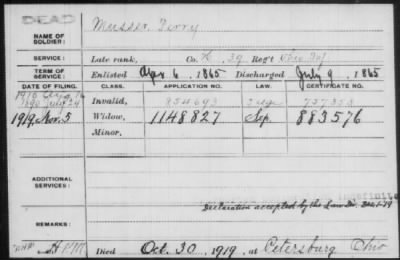 DEAD
NAME OF SOLDIER: Musser, Perry
SERVICE: Late rank, Co. K, 39 Reg't Ohio Inf
TERM OF SERVICE: Enlisted Apr 6, 1865 Discharged July 9, 1865
DATE OF FILING. CLASS. APPLICATION NO. LAW. CERTIFICATE NO.
1890 July 24 Invalid, 854693 737353
1919 Nov. 5 Widow, 1148827 Sep. 883576
Minor.
ADDITIONAL SERVICES:
Declaration accepted by the Law Div.
Died Oct. 30, 1919, at Petersburg Ohio